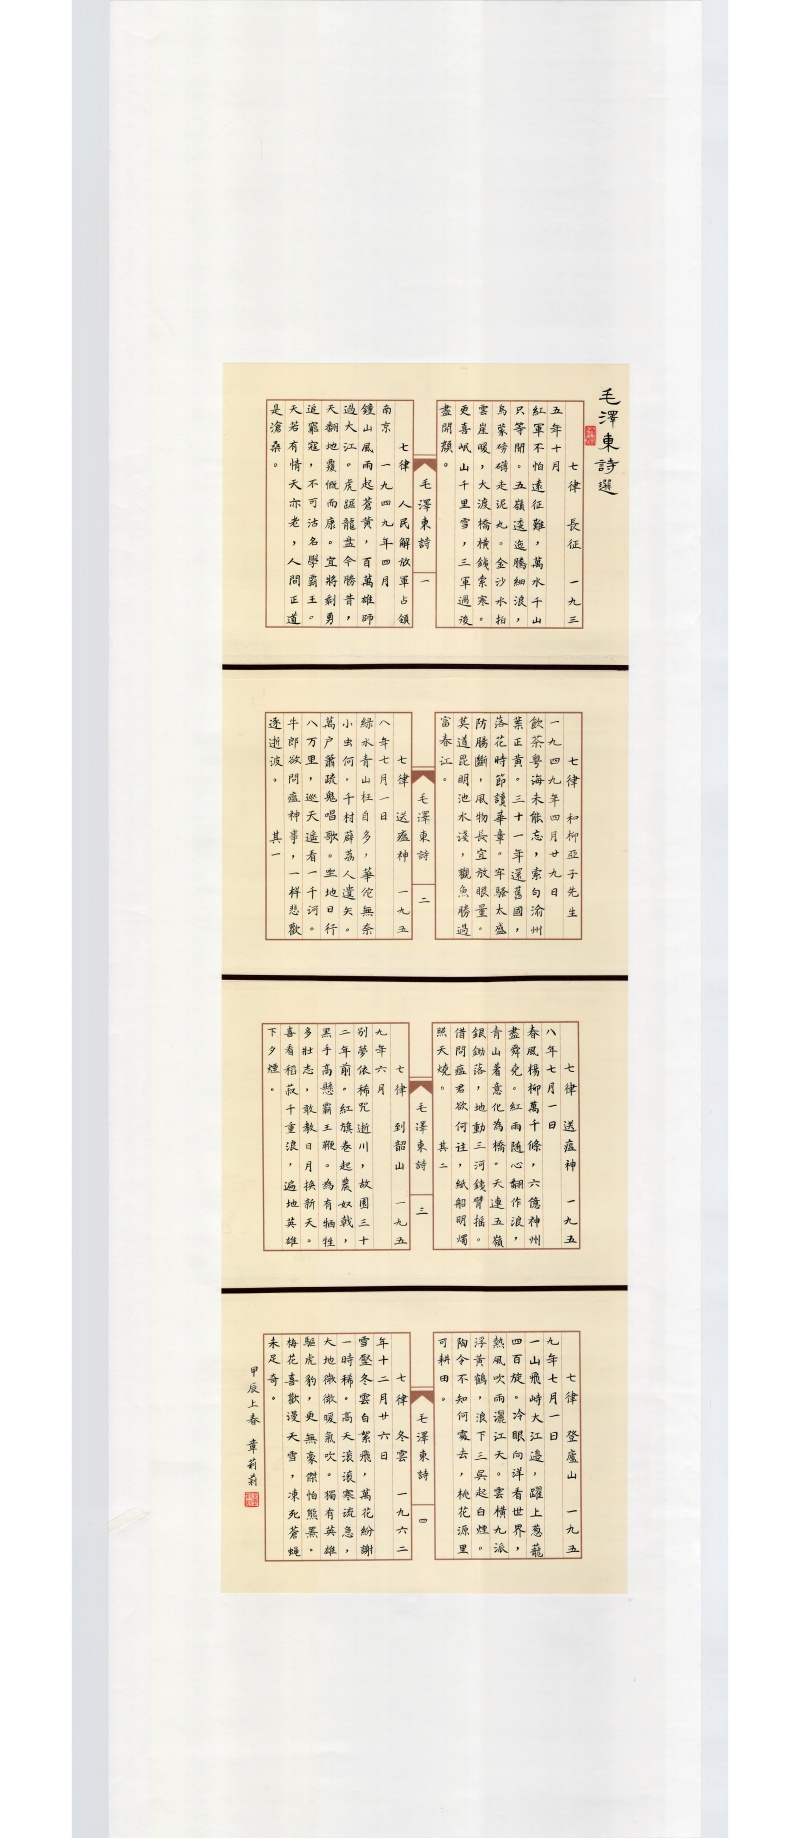 毛澤東詩選
七律　長征　一九三
五年十月
紅軍不怕遠征難，萬水千山
只等閒。五嶺逶迤騰細浪，
烏蒙磅礴走泥丸。金沙水拍
雲崖暖，大渡橋橫鐵索寒。
更喜岷山千里雪，三軍過後
盡開顏。
毛澤東詩　一
七律　人民解放軍占領
南京　一九四九年四月
鐘山風雨起蒼黃，百萬雄師
過大江。虎踞龍盤今勝昔，
天翻地覆慨而康。宜將剩勇
追窮寇，不可沽名學霸王。
天若有情天亦老，人間正道
是滄桑。
七律　和柳亞子先生
一九四九年四月廿九日
飲茶粵海未能忘，索句渝州
葉正黃。三十一年還舊國，
落花時節讀華章。牢騷太盛
防腸斷，風物長宜放眼量。
莫道昆明池水淺，觀魚勝過
富春江。
毛澤東詩　二
七律　送瘟神　一九五
八年七月一日
綠水青山枉自多，華佗無奈
小虫何，千村薜荔人遺矢。
萬户蕭疏鬼唱歌。坐地日行
八万里，巡天遥看一千河。
牛郎欲問瘟神事，一样悲歡
逐逝波。　其一
七律　送瘟神　一九五
八年七月一日
春風楊柳萬千條，六億神州
盡舜堯。紅雨随心翻作浪，
青山著意化為橋。天連五嶺
銀鋤落，地動三河鐵臂摇。
借問瘟君欲何往，紙船明燭
照天燒。　其二
毛澤東詩　三
七律　到韶山　一九五
九年六月
别夢依稀咒逝川，故園三十
二年前。紅旗卷起農奴戟，
黑手高懸霸王鞭。為有牺牲
多壯志，敢教日月换新天。
喜看稻菽千重浪，遍地英雄
下夕煙。
七律　登廬山　一九五
九年七月一日
一山飛峙大江邊，躍上葱蘢
四百旋。冷眼向洋看世界，
熱風吹雨灑江天。雲橫九派
浮黃鶴，浪下三吳起白煙。
陶令不知何處去，桃花源里
可耕田。
毛澤東詩　四
七律　冬雲　一九六二
年十二月廿六日
雪壓冬雲白絮飛，萬花紛謝
一時稀。高天滚滚寒流急，
大地微微暖氣吹。獨有英雄
驅虎豹，更無豪傑怕熊羆。
梅花喜歡漫天雪，凍死蒼蠅
未足奇。
甲辰上春　章莉莉